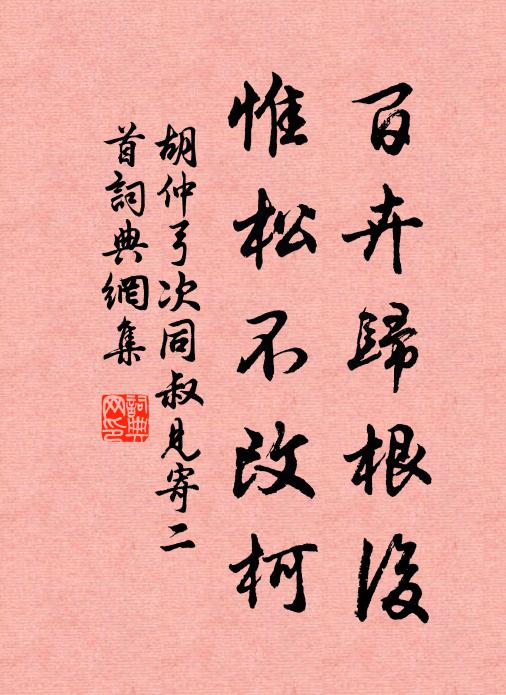 百卉歸根後
惟松不改柯
胡仲弓次同叔見寄二
首詞典網集
詞典網印